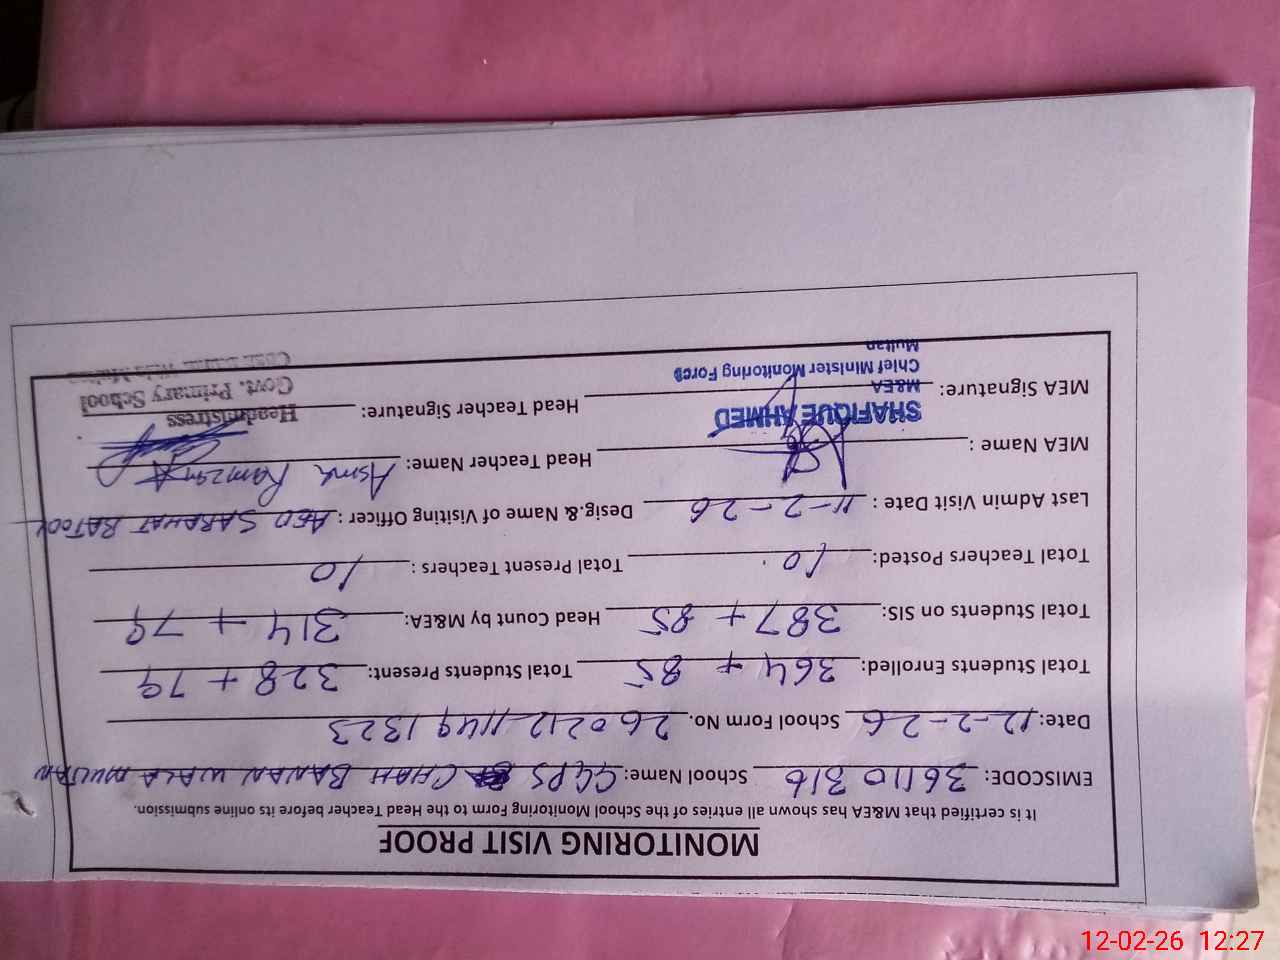 MONITORING VISIT PROOF
It is certified that M&EA has shown all entries of the School Monitoring Form to the Head Teacher before its online submission.
EMISCODE: 36110316 School Name: GGPS CHAH BANAN WALA MULTAN
Date: 12-2-26 School Form No. 26021211491323
Total Students Enrolled: 364 + 85 Total Students Present: 328 + 79
Total Students on SIS: 387 + 85 Head Count by M&EA: 314 + 79
Total Teachers Posted: 10 Total Present Teachers : 10
Last Admin Visit Date : 11-2-26 Desig.& Name of Visiting Officer : AEO SABAHAT BATOOL
MEA Name : Head Teacher Name: Asma Ramzan
MEA Signature: Head Teacher Signature:
SHAFIQUE AHMED
M&EA
Chief Minister Monitoring Force
Multan
Headmistress
Govt. Primary School
12-02-26 12:27